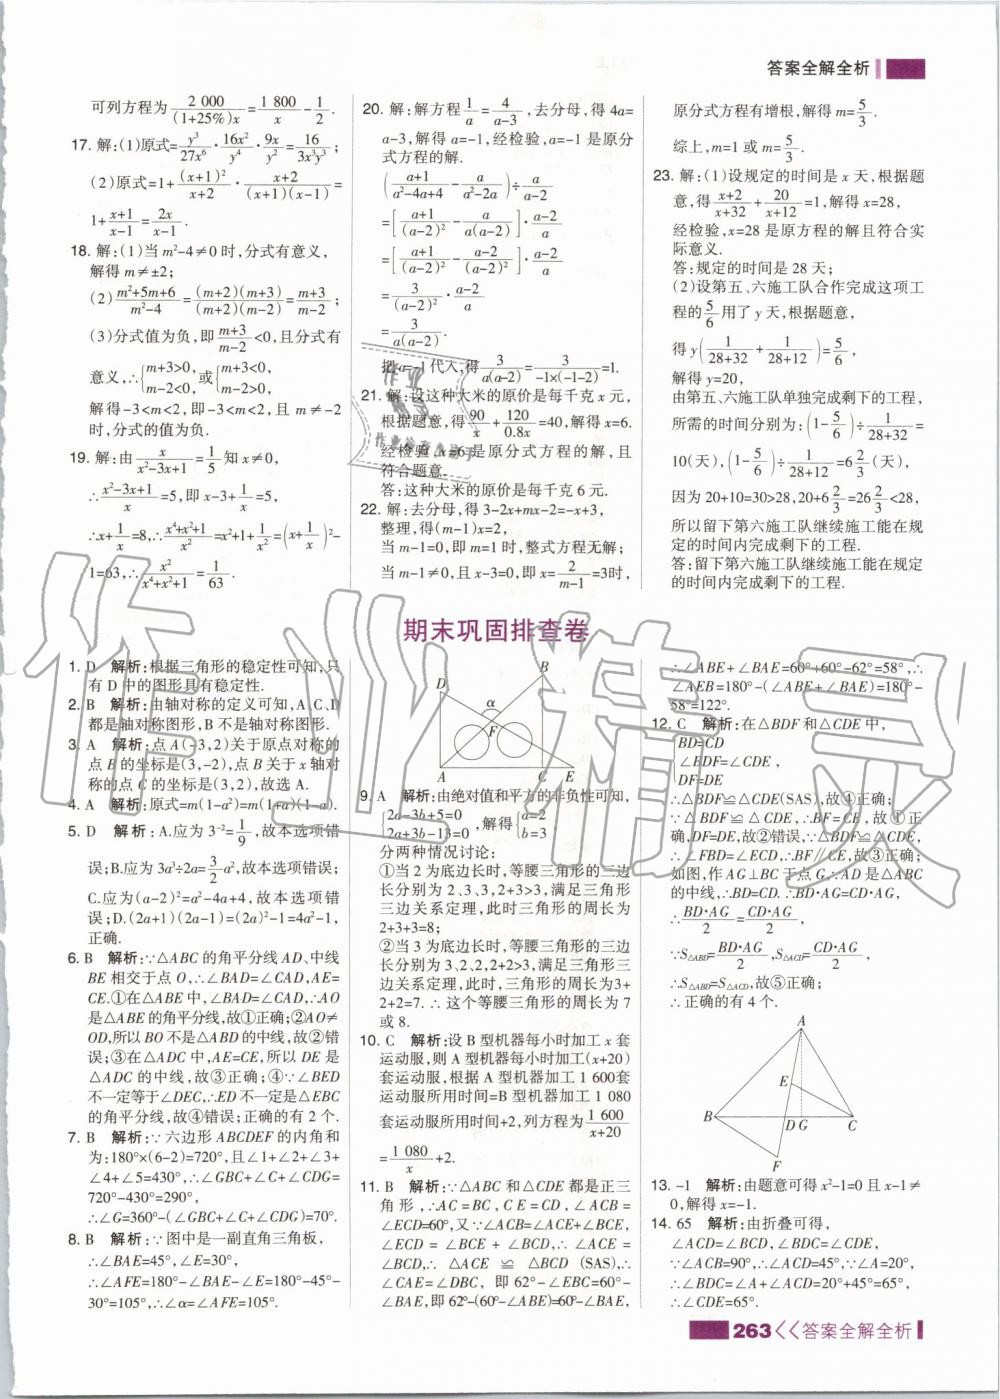 答案全解全析
可列方程为2 000/(1+25%)x=1 800/x-1/2.
17. 解:(1)原式=y³/27x⁶·16x²/y⁴·9x/y²=16/3x³y³;
(2)原式=1+(x+1)²/x+2·x+2/(x+1)(x-1)=
1+x+1/x-1=2x/x-1.
18. 解:(1)当m²-4≠0时,分式有意义,
解得m≠±2;
(2)m²+5m+6/m²-4=(m+2)(m+3)/(m+2)(m-2)=m+3/m-2;
(3)分式值为负,即m+3/m-2<0,且分式有
意义,∴{m+3>0, m-2<0,或{m+3<0, m-2>0,
解得-3<m<2,即-3<m<2,且m≠-2
时,分式的值为负.
19. 解:由x/x²-3x+1=1/5知x≠0,
∴x²-3x+1/x=5,即x-3+1/x=5,
∴x+1/x=8,∴x⁴+x²+1/x²=x²+1+1/x²=(x+1/x)²-
1=63,∴x²/x⁴+x²+1=1/63.
20. 解:解方程1/a=4/a-3,去分母,得4a=
a-3,解得a=-1,经检验,a=-1是原分
式方程的解.
(a+1/a²-4a+4-a/a²-2a)÷a/a-2
=[a+1/(a-2)²-a/a(a-2)]·a-2/a
=[a+1/(a-2)²-a-2/(a-2)²]·a-2/a
=3/(a-2)²·a-2/a
=3/a(a-2).
把a=-1代入,得3/a(a-2)=3/-1×(-1-2)=1.
21. 解:设这种大米的原价是每千克x元,
根据题意,得90/x+120/0.8x=40,解得x=6.
经检验,x=6是原分式方程的解,且
符合题意.
答:这种大米的原价是每千克6元.
22. 解:去分母,得3-2x+mx-2=-x+3,
整理,得(m-1)x=2,
当m-1=0,即m=1时,整式方程无解;
当m-1≠0,且x-3=0,即x=2/m-1=3时,
原分式方程有增根,解得m=5/3.
综上,m=1或m=5/3.
23. 解:(1)设规定的时间是x天,根据题
意,得x+2/x+32+20/x+12=1,解得x=28,
经检验,x=28是原方程的解且符合实
际意义.
答:规定的时间是28天;
(2)设第五、六施工队合作完成这项工
程的5/6用了y天,根据题意,
得y(1/28+32+1/28+12)=5/6,
解得y=20,
由第五、六施工队单独完成剩下的工程,
所需的时间分别为:(1-5/6)÷1/28+32=
10(天),(1-5/6)÷1/28+12=6 2/3(天),
因为20+10=30>28,20+6 2/3=26 2/3<28,
所以留下第六施工队继续施工能在规
定的时间内完成剩下的工程.
答:留下第六施工队继续施工能在规定
的时间内完成剩下的工程.
期末巩固排查卷
1. D 解析:根据三角形的稳定性可知,只
有D中的图形具有稳定性.
2. B 解析:由轴对称的定义可知,A、C、D
都是轴对称图形,B不是轴对称图形.
3. A 解析:点A(-3,2)关于原点对称的
点B的坐标是(3,-2),点B关于x轴对
称的点C的坐标是(3,2),故选A.
4. A 解析:原式=m(1-a²)=m(1+a)(1-a).
5. D 解析:A.应为3⁻²=1/9,故本选项错
误;B.应为3a³÷2a=3/2a²,故本选项错误;
C.应为(a-2)²=a²-4a+4,故本选项错
误;D.(2a+1)(2a-1)=(2a)²-1=4a²-1,
正确.
6. B 解析:∵△ABC的角平分线AD、中线
BE相交于点O,∴∠BAD=∠CAD,AE=
CE.①在△ABE中,∠BAD=∠CAD,∴AO
是△ABE的角平分线,故①正确;②AO≠
OD,所以BO不是△ABD的中线,故②错
误;③在△ADC中,AE=CE,所以DE是
△ADC的中线,故③正确;④∵∠BED
不一定等于∠DEC,∴ED不一定是△EBC
的角平分线,故④错误;正确的有2个.
7. B 解析:∵六边形ABCDEF的内角和
为:180°×(6-2)=720°,且∠1+∠2+∠3+
∠4+∠5=430°,∴∠GBC+∠C+∠CDG=
720°-430°=290°,
∴∠G=360°-(∠GBC+∠C+∠CDG)=70°.
8. B 解析:∵图中是一副直角三角板,
∴∠BAE=45°,∠E=30°,
∴∠AFE=180°-∠BAE-∠E=180°-45°-
30°=105°,∴∠α=∠AFE=105°.
D B α F A C E
9. A 解析:由绝对值和平方的非负性可知,
{2a-3b+5=0 2a+3b-13=0,解得{a=2 b=3
分两种情况讨论:
①当2为底边长时,等腰三角形的三边
长分别为2、3、3,2+3>3,满足三角形
三边关系定理,此时三角形的周长为
2+3+3=8;
②当3为底边长时,等腰三角形的三边
长分别为3、2、2,2+2>3,满足三角形
三边关系定理,此时,三角形的周长为3+
2+2=7.∴这个等腰三角形的周长为7
或8.
10. C 解析:设B型机器每小时加工x套
运动服,则A型机器每小时加工(x+20)
套运动服,根据A型机器加工1 600套
运动服所用时间=B型机器加工1 080
套运动服所用时间+2,列方程为1 600/x+20
=1 080/x+2.
11. B 解析:∵△ABC和△CDE都是正三
角形,∴AC=BC,CE=CD,∠ACB=
∠ECD=60°,又∵∠ACB=∠ACE+∠BCE,
∠ECD=∠BCE+∠BCD,∴∠ACE=
∠BCD,∴△ACE≌△BCD(SAS),∴
∠CAE=∠DBC,即62°-∠EBC=60°-
∠BAE,即62°-(60°-∠ABE)=60°-∠BAE,
∴∠ABE+∠BAE=60°+60°-62°=58°,∴
∠AEB=180°-(∠ABE+∠BAE)=180°-
58°=122°.
12. C 解析:在△BDF和△CDE中,
{BD=CD ∠BDF=∠CDE, DF=DE
∴△BDF≌△CDE(SAS),故④正确;
∵△BDF≌△CDE,∴BF=CE,故①正
确,DF=DE,故②错误,∵△BDF≌△CDE,
∴∠FBD=∠ECD,∴BF∥CE,故③正确;
如图,作AG⊥BC于点G,∴AD是△ABC
的中线,∴BD=CD.∴BD·AG=CD·AG,
∴BD·AG/2=CD·AG/2,
∵S△ABD=BD·AG/2,S△ACD=CD·AG/2,
∴S△ABD=S△ACD,故⑤正确;
∴正确的有4个.
A E B D G C F
13. -1 解析:由题意可得x²-1=0且x-1≠
0,解得x=-1.
14. 65 解析:由折叠可得,
∠ACD=∠BCD,∠BDC=∠CDE,
∵∠ACB=90°,∴∠ACD=45°,∵∠A=20°,
∴∠BDC=∠A+∠ACD=20°+45°=65°,
∴∠CDE=65°.
263<<答案全解全析
作业精灵